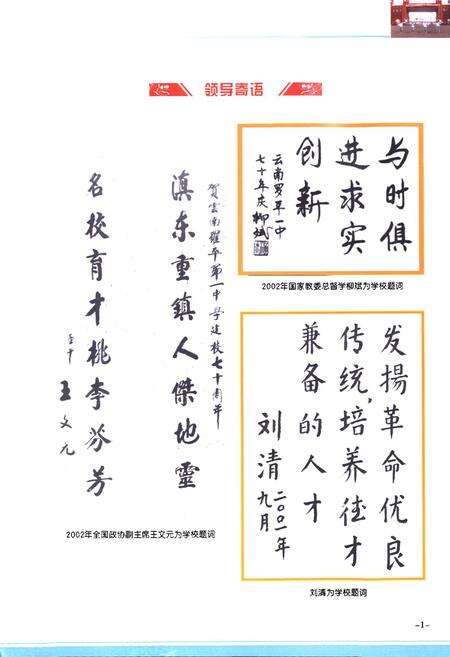 领导寄语
与时俱
进求实
创新
云南罗平一中
七十年庆 柳斌
2002年国家教委总督学柳斌为学校题词
贺云南罗平第一中学建校七十周年
滇东重镇人傑地靈
名校育才桃李芬芳
壬午 王文元
2002年全国政协副主席王文元为学校题词
发揚革命优良
传统,培养德才
兼备的人才
刘清
二〇〇一年
九月
刘清为学校题词
-1-